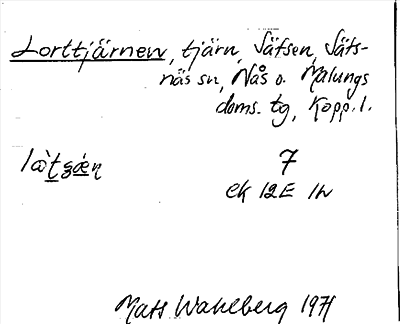 Lorttjärnen, tjärn, Säfsen, Säfs-
näs sn, Nås o. Malungs
doms. tg, Kopp. l.
7
ek 12E 1h
Mats Wahlberg 1971